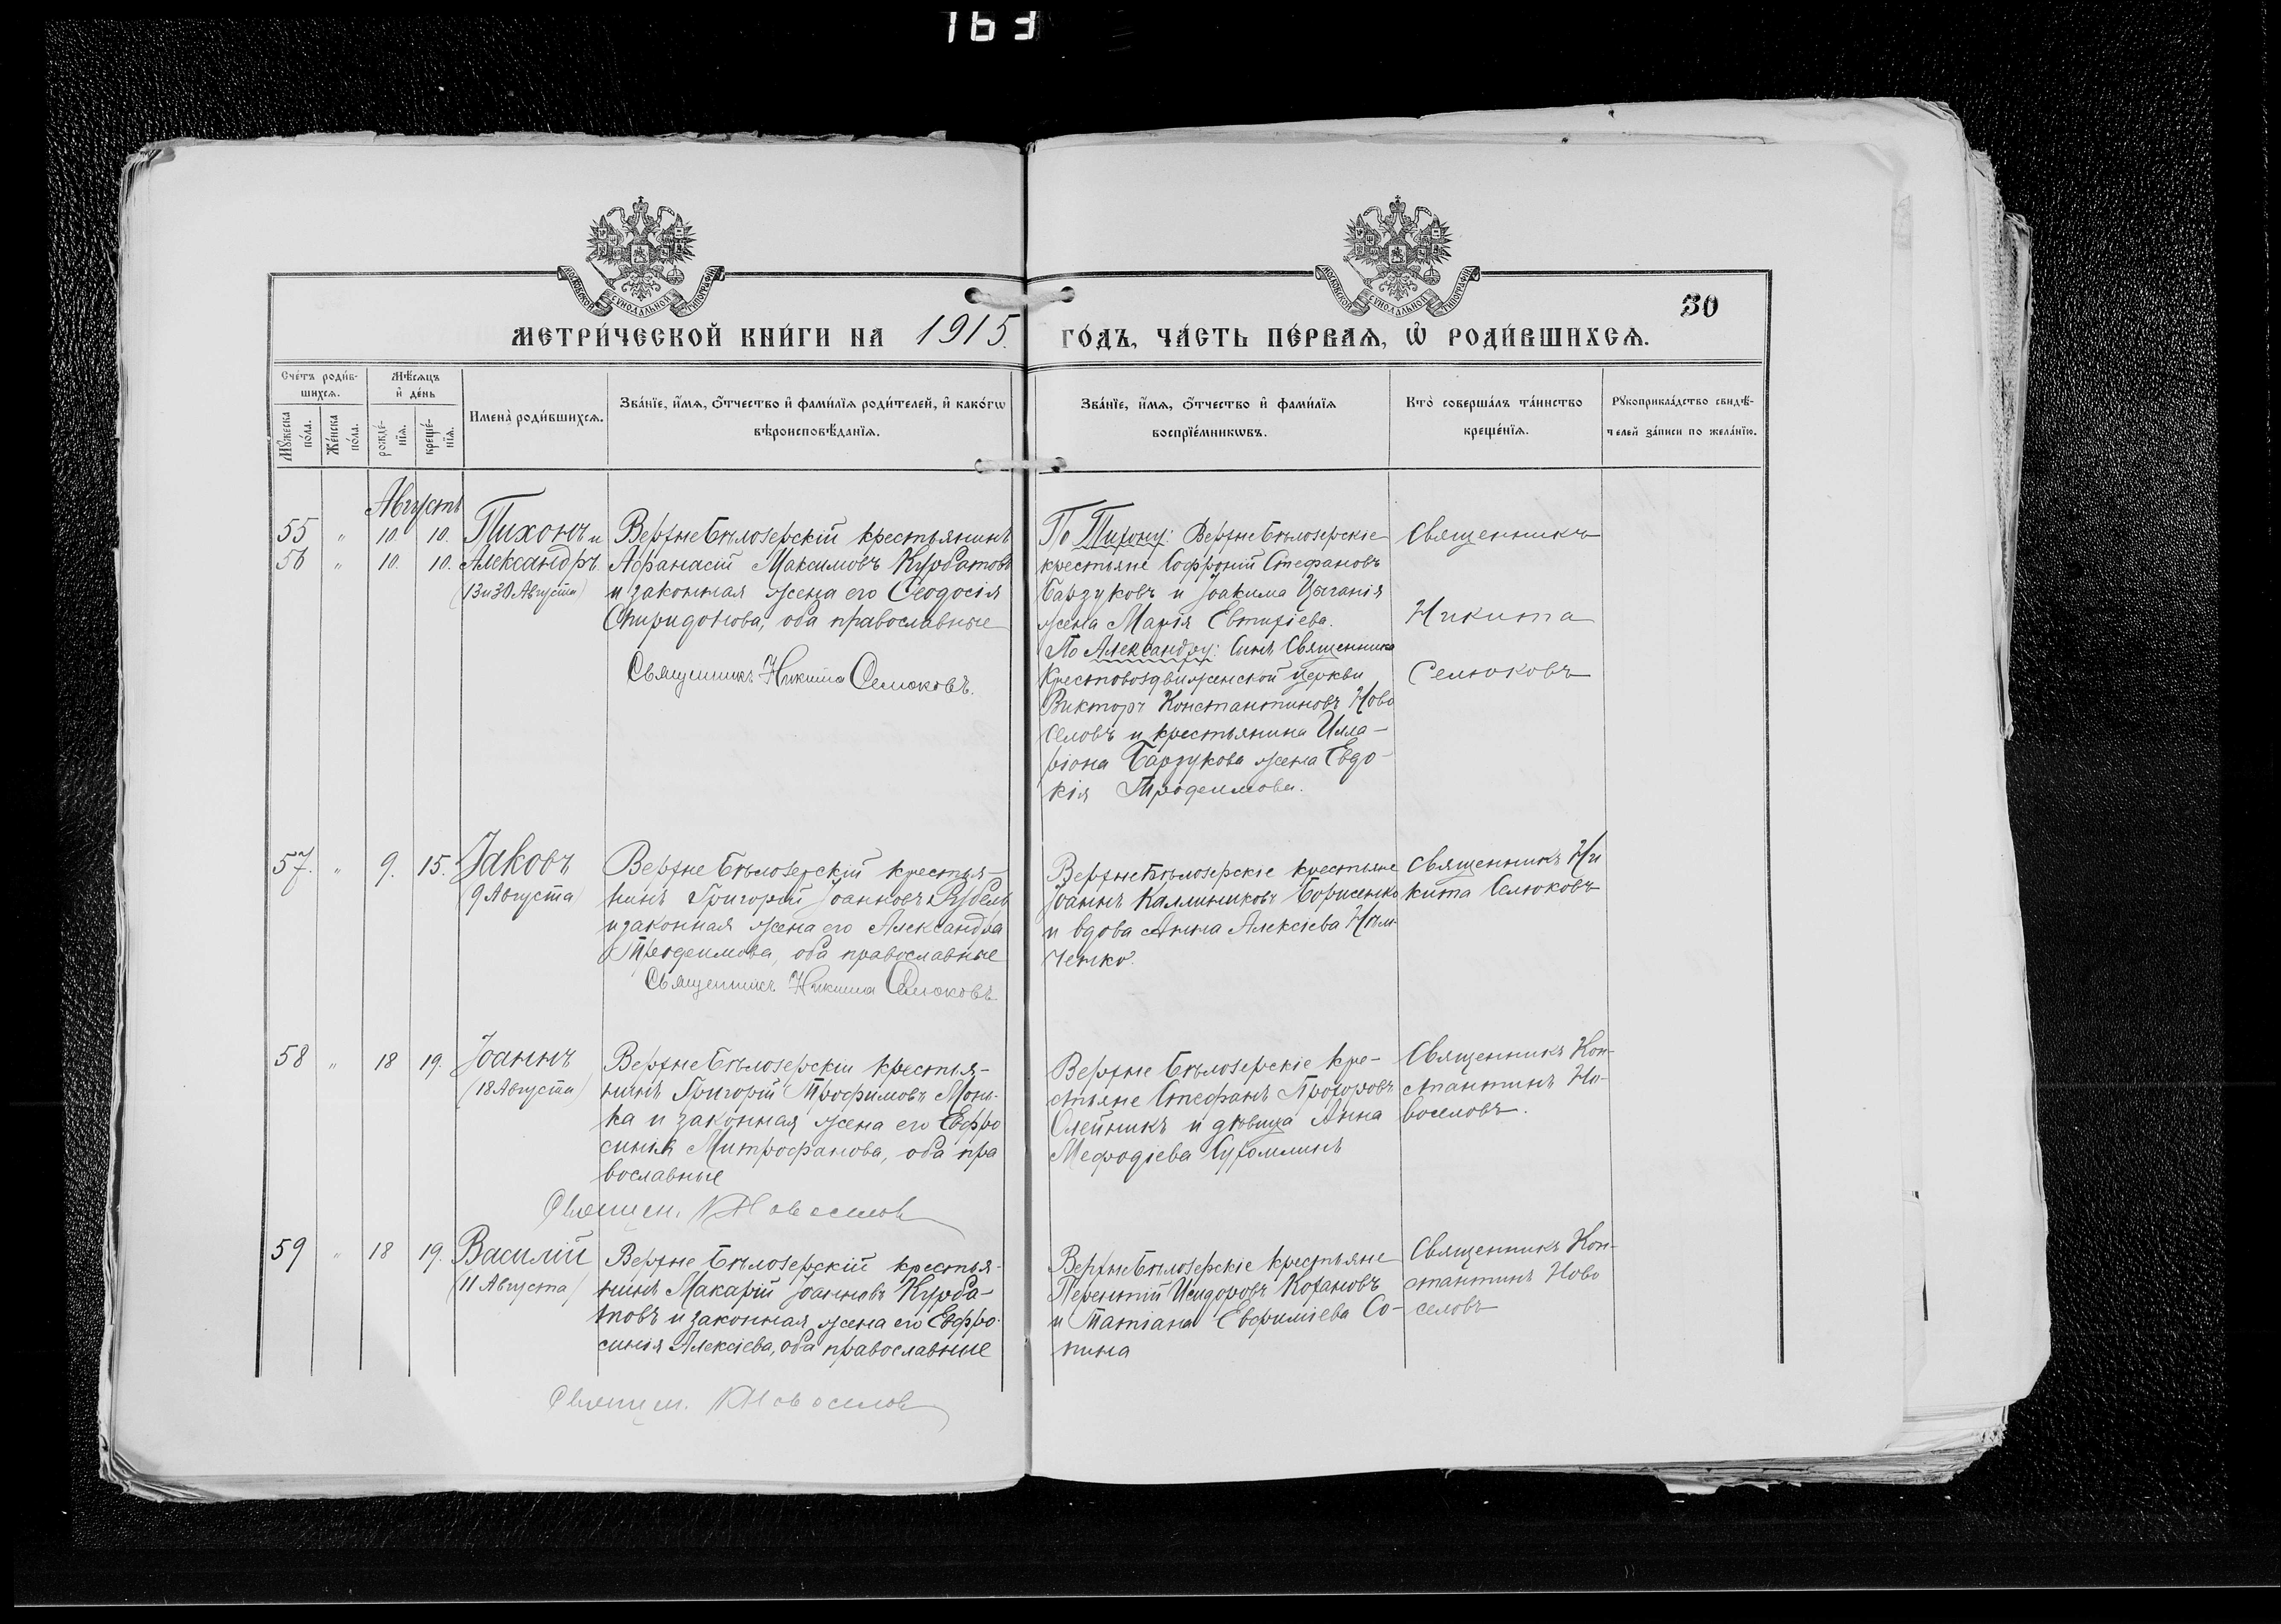 163
МОСКОВСКОЙ СѴНОДАЛЬНОЙ ТИПОГРАФІИ
МОСКОВСКОЙ СѴНОДАЛЬНОЙ ТИПОГРАФІИ
30
МЕТРИ́ЧЕСКОЙ КНИ́ГИ НА 1915. ГО́ДЪ, ЧА́СТЬ ПЕ́РВАѦ, Ѡ҆ РОДИ́ВШИХСѦ.
Сче́тъ роди́в-
шихсѧ.
Мѣ́сѧцъ
и҆ де́нь
Мꙋ́жеска по́ла.
Же́нска по́ла.
рожде́-нїѧ.
креще́-нїѧ.
Имена̀ роди́вшихсѧ.
Зва́нїе, и҆́мѧ, ѻ҆́тчество и҆ фами́лїѧ роди́телей, и҆ како́гѡ
вѣроисповѣ́данїѧ.
Зва́нїе, и҆́мѧ, ѻ҆́тчество и҆ фами́лїѧ
воспрїе́мникѡвъ.
Кто̀ соверша́лъ та́инство
креще́нїѧ.
Рꙋкоприкла́дство свидѣ́-
телей за́писи по жела́нїю.
Августъ
55 " 10. 10. Тихонъ и
56 " 10. 10. Александръ
(13 и 30 Августа)
Верхнебѣлозерскій крестьянинъ
Афанасій Максимовъ Курбатовъ
и законная жена его Ѳеодосія
Спиридонова, оба православные
Священникъ Никита Селюковъ.
По Тихону: Верхнебѣлозерскіе
крестьяне Софроній Стефановъ
Барзуковъ и Іоакима Цыганія
жена Марія Евтихіева.
По Александру: Сынъ Священника
Крестовоздвиженской церкви
Викторъ Константиновъ Ново
селовъ и крестьянина Илла-
ріона Барзукова жена Евдо-
кія Трофимова.
Священникъ
Никита
Селюковъ
57. " 9. 15. Іаковъ
(9 Августа)
Верхнебѣлозерскій крестья-
нинъ Григорій Іоанновъ Рубель
и законная жена его Александра
оба православные
Священникъ Никита Селюковъ
Верхнебѣлозерскіе крестьяне
Іоаннъ Каллиниковъ Борисенко
и вдова Анна Алексіева Нѣм-
ченко.
Священникъ Ни
кита Селюковъ
58 " 18 19. Іоаннъ
(18 Августа)
Верхнебѣлозерскій крестья-
нинъ Григорій Трофимовъ Мощ-
ка и законная жена его Евфро
синія Митрофанова, оба пра
вославные
Священ. К Новоселов
Верхнебѣлозерскіе кре-
стьяне Стефанъ Прохоровъ
Олейникъ и дѣвица Анна
Мефодіева Сухомлинъ
Священникъ Кон-
стантинъ Но-
воселовъ.
59 " 18 19. Василій
(11 Августа)
Верхнебѣлозерскій крестья-
нинъ Макарій Іоанновъ Курба-
товъ и законная жена его Евфро-
синія Алексіева, оба православные
Священ. К Новоселов
Верхнебѣлозерскіе крестьяне
Терентій Исидоровъ Кохановъ
и Татіана Евфиміева Со-
пина
Священникъ Кон-
стантинъ Ново
селовъ